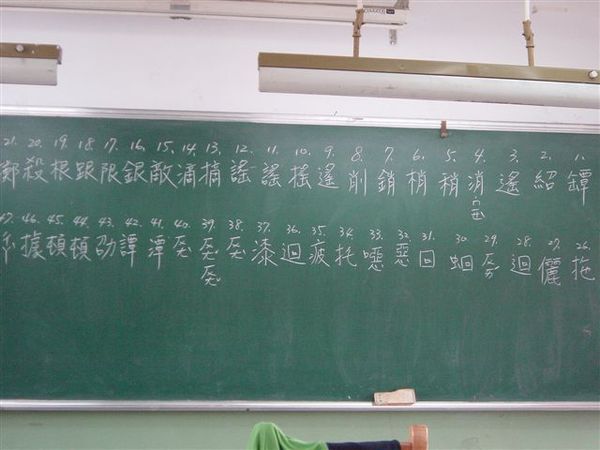 1. 鐔 2. 紹 3. 遙 4. 消 5. 稍 6. 梢 7. 銷 8. 削 9. 遙 10. 搖 11. 謠 12. 謠 13. 摘 14. 滴 15. 敵 16. 銀 17. 限 18. 跟 19. 根 20. 殺 21. 鄭
26. 拖 27. 儷 28. 迴 29. 30. 蛔 31. 回 32. 惡 33. 噁 34. 托 35. 疲 36. 迴 37. 漆 38. 39. 40. 41. 潭 42. 譚 43. 劭 44. 頓 45. 頓 46. 據 47.